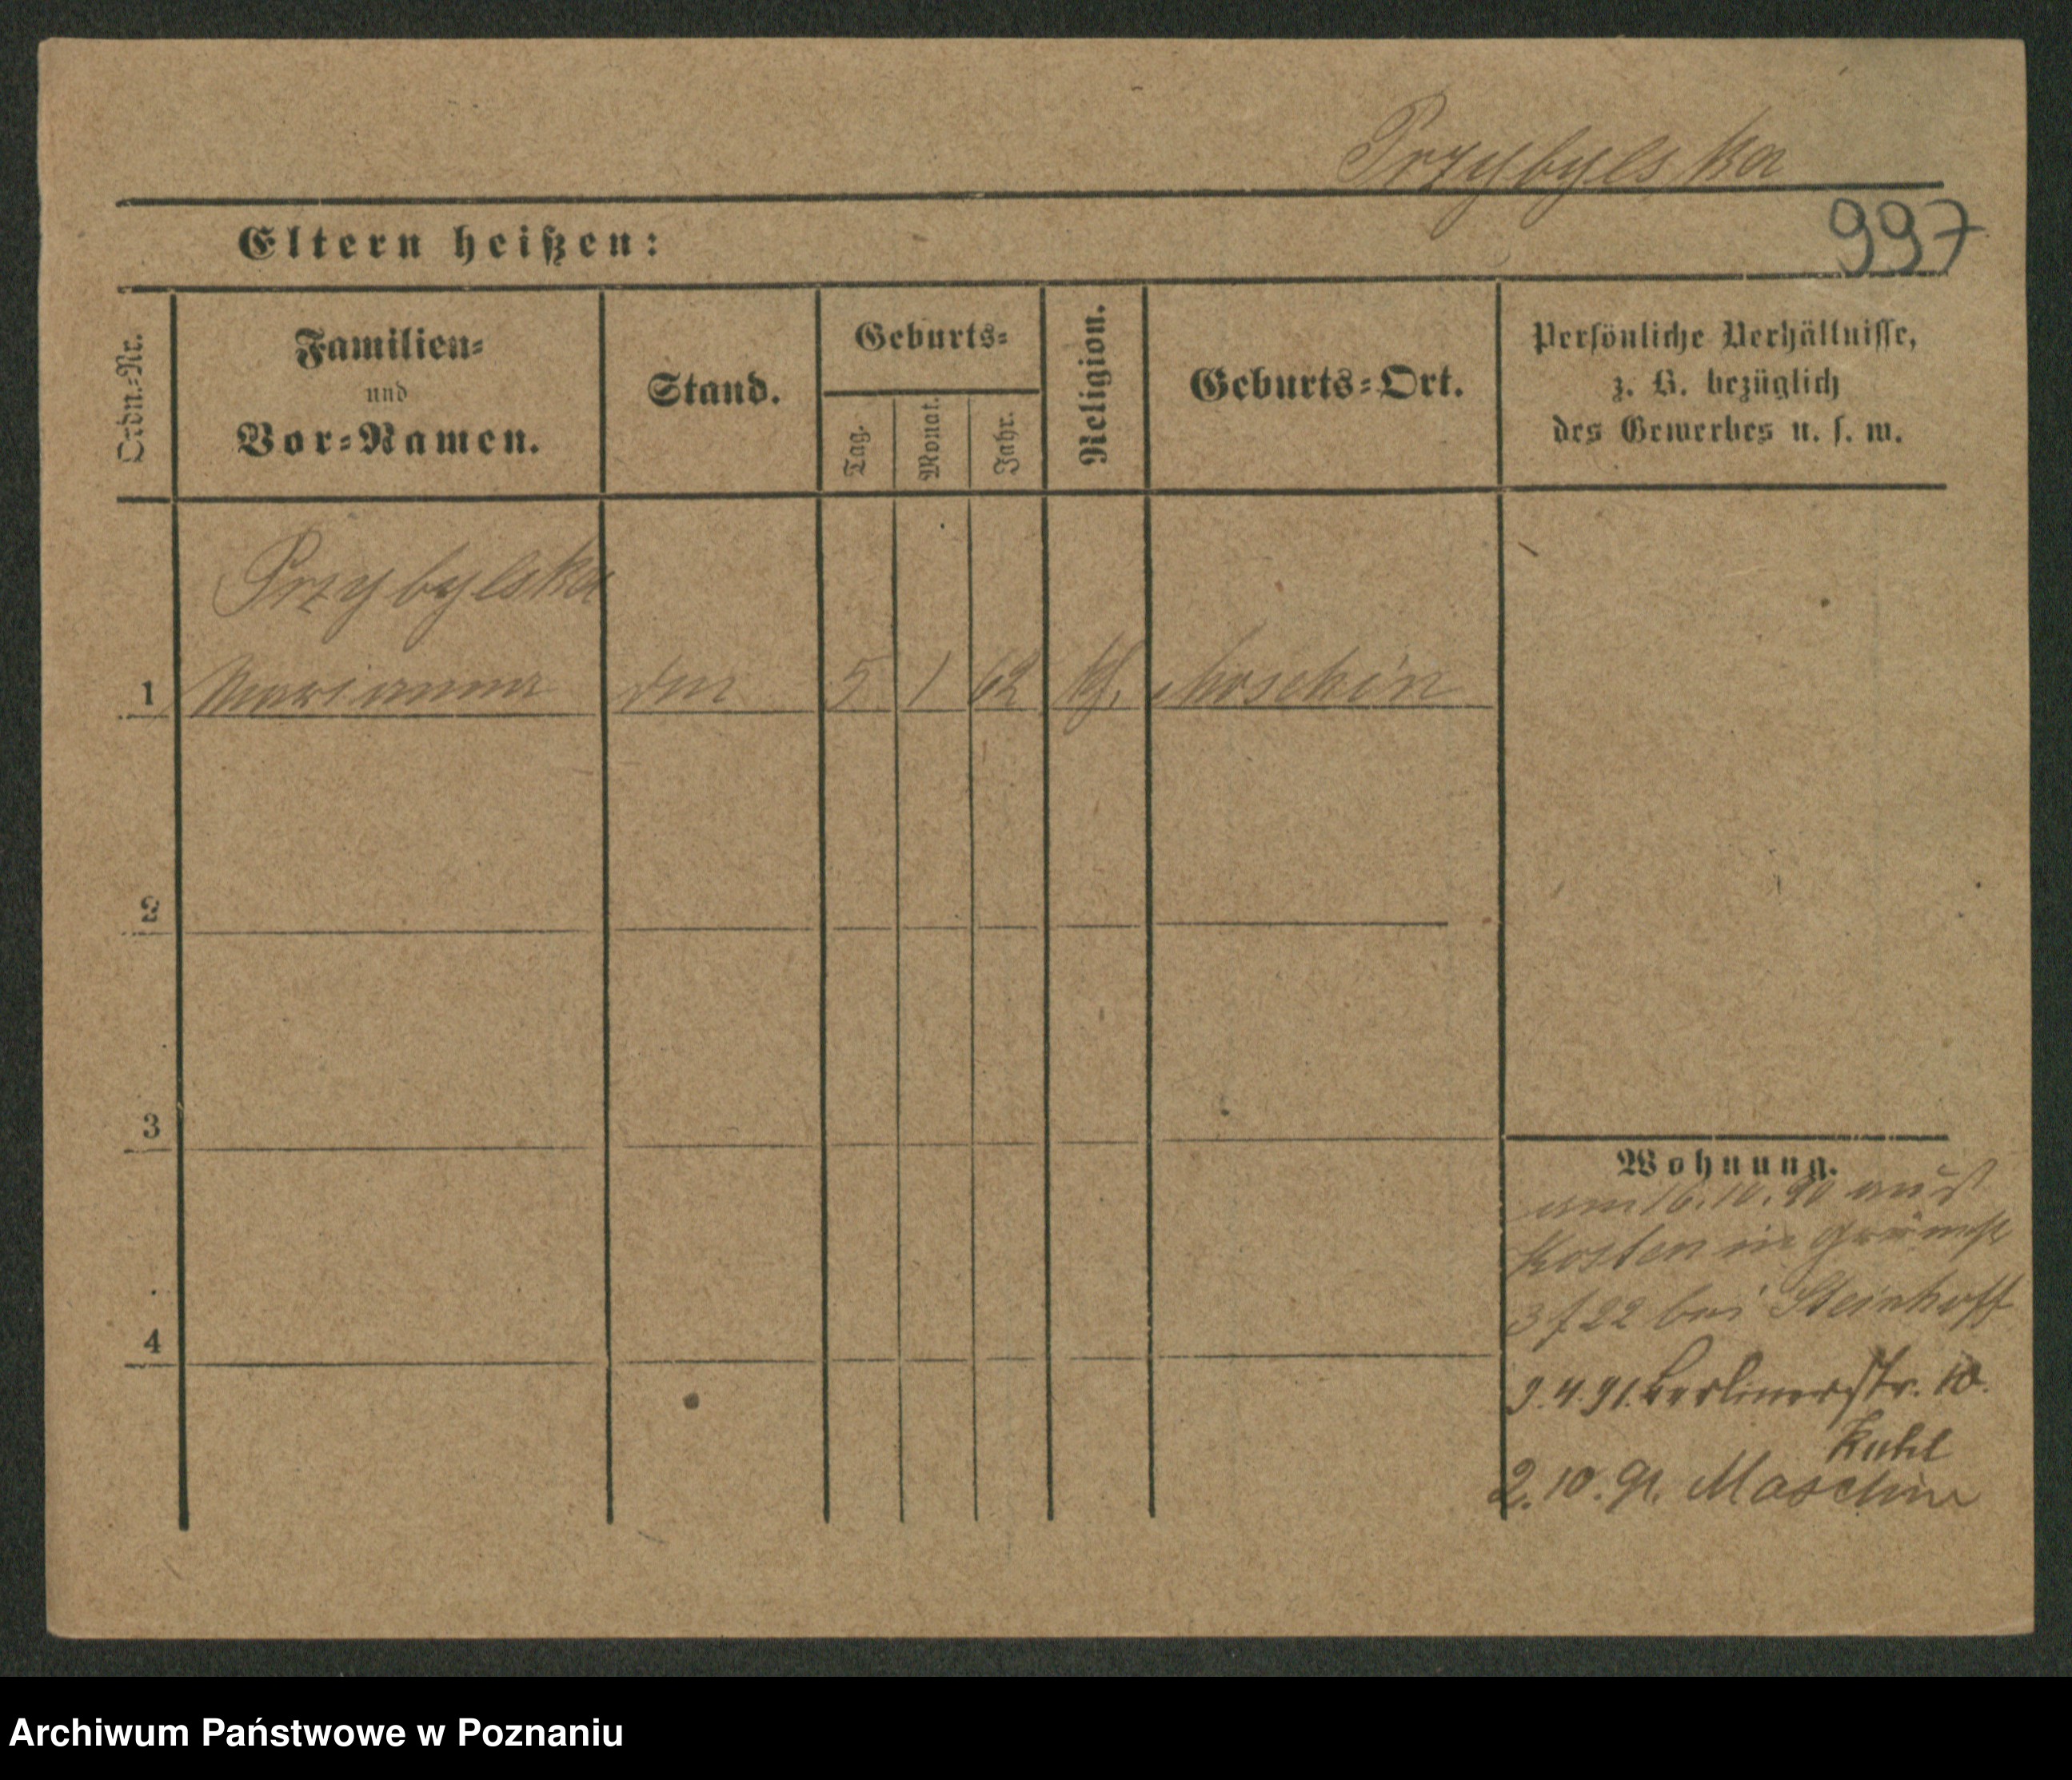 Przybylska
997
Eltern heißen:
Ordn.-Nr.
Familien-
und
Vor-Namen.
Stand.
Geburts-
Tag.
Monat.
Jahr.
Religion.
Geburts-Ort.
Persönliche Verhältnisse,
z. B. bezüglich
des Gewerbes u. s. w.
Przybylska
1 Marianna 5 1 62 Moschin
2
3
4
Wohnung.
am 16.10.90 aus
Kosten in
bei Steinhoff
9.4.91. Berlinerstr. 10.
Kuhl
2.10.91. Maschin
Archiwum Państwowe w Poznaniu